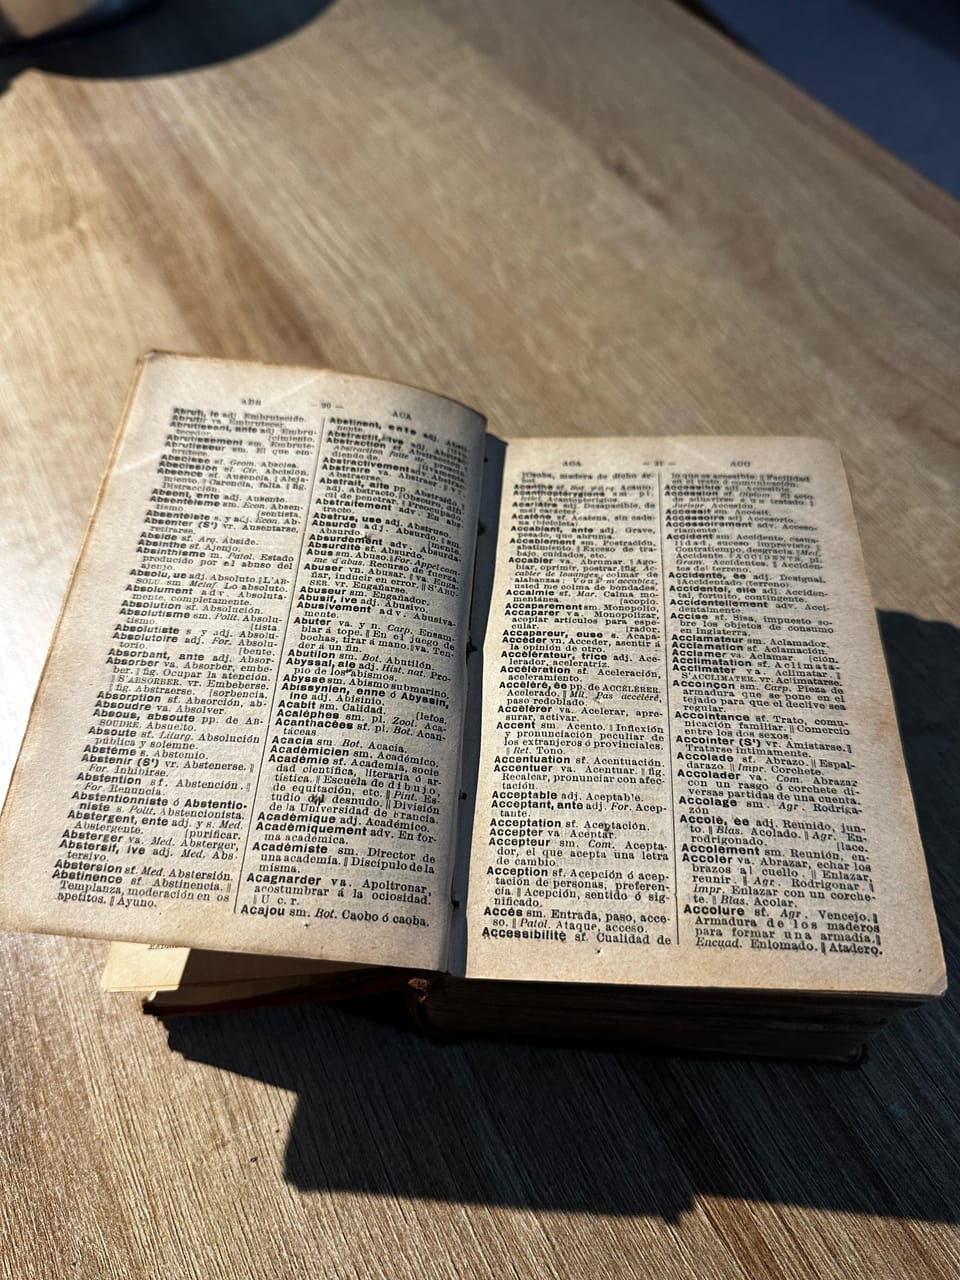 ABS — 20 — ACA
Abruti, ie adj. Embrutecido.
Abrutir va. Embrutecer.
Abrutissant, ante adj. Embru-
tecedor. [cimiento.
Abrutissement sm. Embrute-
Abrutisseur sm. El que em-
brutece.
Abscisse sf. Geom. Abscisa.
Abscission sf. Cir. Abcisión.
Absence sf. Ausencia. || Aleja-
miento. || Carencia, falta. || fig.
Distracción.
Absent, ente adj. Ausente.
Absentéisme sm. Econ. Absen-
tismo. [sentista.
Absentéiste s. y adj. Econ. Ab-
Absenter (S') vr. Ausentarse,
retirarse.
Abside sf. Arq. Ábside.
Absinthe sf. Ajenjo.
Absinthisme m. Patol. Estado
producido por el abuso del
ajenjo.
Absolu, ue adj. Absoluto. || L'AB-
SOLU. sm. Metaf. Lo absoluto.
Absolument adv. Absoluta-
mente, completamente.
Absolution sf. Absolución.
Absolutisme sm. Polít. Absolu-
tismo [tista
Absolutiste s y adj. Absolu-
Absolutoire adj. For. Absolu-
torio. [bente.
Absorbant, ante adj. Absor-
Absorber va. Absorber, embe-
ber. || fig. Ocupar la atención.
|| S'ABSORBER. vr. Embeberse.
|| fig. Abstraerse. [sorbencia.
Absorption sf. Absorción, ab-
Absoudre va. Absolver.
Absous, absoute pp. de AB-
SOUDRE Absuelto.
Absoute sf. Liturg. Absolución
pública y solemne.
Abstème s. Abstemio.
Abstenir (S') vr. Abstenerse. ||
For. Inhibirse.
Abstention s f. Abstención. ||
For Renuncia.
Abstentionniste ó Abstentio-
niste s. Polít. Abstencionista.
Abstergent, ente adj. y s. Med.
Abstergente. [purificar.
Absterger va. Med. Absterger,
Abstersif, ive adj. Med. Abs-
tersivo.
Abstersion sf. Med. Abstersión.
Abstinence sf. Abstinencia. ||
Templanza, moderación en os
apetitos. || Ayuno.
Abstinent, ente adj. Absti
nente.
Abstractif, ive adj.
Abstraction
Abstraction faite
diendo de.
Abstractivement adv.
Abstraire va. Abstraer || vr.
Abstraerse.
Abstrait, aite pp.
adj. Abstracto, Obstraído,
cil de penetrar. || Preocupado
Abstraitement adv. En abs-
tracto.
Abstrus, use adj. Abstruso.
Absurde adj. Absurdo. || sm.
Absurdo.
Absurdement adv. Absurda-
mente.
Absurdité sf. Absurdo.
Abus sm. Abuso. || For. Appel com-
me d'abus. Recurso de fuerza.
Abuser vn. Abusar. || va. Enga-
ñar, inducir en error. || S'ABU-
SER. vr. Engañarse.
Abuseur sm. Engañador.
Abusif, ive adj. Abusivo.
Abusivement adv. Abusiva-
mente
Abuter va. y n. Carp. Ensam-
blar á tope. || En el juego de
bochas, tirar á mano. || va. Ten-
der á un fin.
Abutilon sm. Bot. Abutilón.
Abyssal, ale adj. Hist. nat. Pro-
pio de los abismos.
Abysse sm. Abismo submarino.
Abissynien, enne ó Abyssin,
ine adj. Abisinio.
Acabit sm. Calidad. [letos.
Acaléphes sm. pl. Zool. Aca-
Acanthacées sf. pl. Bot. Acan-
táceas
Acacia sm. Bot. Acacia.
Académicien sm. Académico,
Académie sf. Academia, socie
dad científica, literaria ó ar-
tística. || Escuela de dibujo,
de equitación, etc. || Pint. Es-
tudio del desnudo. || División
de la Universidad de Francia.
Académique adj. Académico.
Académiquement adv. En for-
ma académica.
Académiste sm. Director de
una academia. || Discípulo de la
misma.
Acagnarder va. Apoltronar,
acostumbrar á la ociosidad.
|| U c. r.
Acajou sm. Bot. Caobo ó caoba.
ACA — 21 — ACC
[Caoba, madera de dicho ár-
Acanthe sf. Bot. y Arq. Acanto.
Acanthoptérygiens sm. pl.
Acariâtre adj. Desapacible, de
mal carácter.
Acatène sf. Acatena, sin cade
na (bicicleta).
Accablant, ante adj. Grave,
pesado, que abruma.
Accablement sm. Postración,
abatimiento. || Exceso de tra-
bajo, cuidados, etc.
Accabler va. Abrumar. || Ago-
biar, oprimir, postrar || fig. Ac-
cabler de louanges, colmar de
alabanzas: Vous m'accablez,
usted me colma de bondades.
Accalmie sf. Mar. Calma mo-
mentánea
Accaparement sm. Monopolio.
Accaparer va. Monopolizar,
acopiar artículos para espe-
cular. [rador.
Accapareur, euse s. Acapa-
Accéder vn. Acceder, asentir á
la opinión de otro.
Accélérateur, trice adj. Ace-
lerador, aceleratriz.
Accélération sf. Aceleración,
aceleramiento.
Accéléré, ée pp. de ACCÉLÉRER.
Acelerado. || Mil. Pas accéléré,
paso redoblado.
Accélérer va. Acelerar, apre-
surar, activar.
Accent sm. Acento. || Inflexión
y pronunciación peculiar de
los extranjeros ó provinciales.
|| Ret. Tono.
Accentuation sf. Acentuación.
Accentuer va. Acentuar. || fig.
Recalcar, pronunciar con afec-
tación.
Acceptable adj. Aceptable.
Acceptant, ante adj. For. Acep-
tante.
Acceptation sf. Aceptación.
Accepter va. Aceptar.
Accepteur sm. Com. Acepta-
dor, el que acepta una letra
de cambio.
Acception sf. Acepción ó acep-
tación de personas, preferen-
cia. || Acepción, sentido ó sig-
nificado.
Accès sm. Entrada, paso, acce-
so. || Patol. Ataque, acceso.
Accessibilité sf. Cualidad de
lo que es accesible. || Facilidad
en el trato ó comunicación
Accessible adj. Accesible.
Accession sf. Diplom. El acto
de adherirse á un tratado. ||
Jurisp. Accesión
Accessit sm. Accésit.
Accessoire adj. Accesorio.
Accessoirement adv. Acceso-
riamente
Accident sm. Accidente, casua-
lidad, suceso imprevisto. ||
Contratiempo, desgracia. || Med.
Accidente || ACCIDENTS. pl.
Geom. Accidentes. || Acciden-
tes del terreno.
Accidenté, ée adj. Desigual.
|| Accidentado (terreno).
Accidentel, elle adj. Acciden-
tal, fortuito, contingente.
Accidentellement adv. Acci-
dentalmente.
Accise sf. Sisa, impuesto so-
bre los objetos de consumo
en Inglaterra.
Acclamateur sm. Aclamador.
Acclamation sf. Aclamación.
Acclamer va. Aclamar [ción.
Acclimatation sf. Aclimata-
Acclimater va. Aclimatar. ||
S'ACCLIMATER. vr. Aclimatarse.
Accoinçon sm. Carp. Pieza de
armadura que se pone en el
tejado para que el declive sea
regular.
Accointance sf. Trato, comu-
nicación familiar. || Comercio
entre los dos sexos.
Accointer (S') vr. Amistarse. ||
Tratarse intimamente.
Accolade sf. Abrazo. || Espal-
darazo || Impr. Corchete.
Accolader va. Com. Abrazaz
con un rasgo ó corchete di-
versas partidas de una cuenta.
Accolage sm. Agr. Rodriga-
zón
Accolé, ée adj. Reunido, jun-
to. || Blas. Acolado. || Agr. En-
rodrigonado. [lace.
Accolement sm. Reunión, en-
Accoler va. Abrazar, echar los
brazos al cuello. || Enlazar,
reunir. || Agr. Rodrigonar. ||
Impr. Enlazar con un corche-
te. || Blas. Acolar.
Accolure sf. Agr. Vencejo. ||
Armadura de los maderos
para formar una armadía. ||
Encuad. Enlomado. || Atadero.